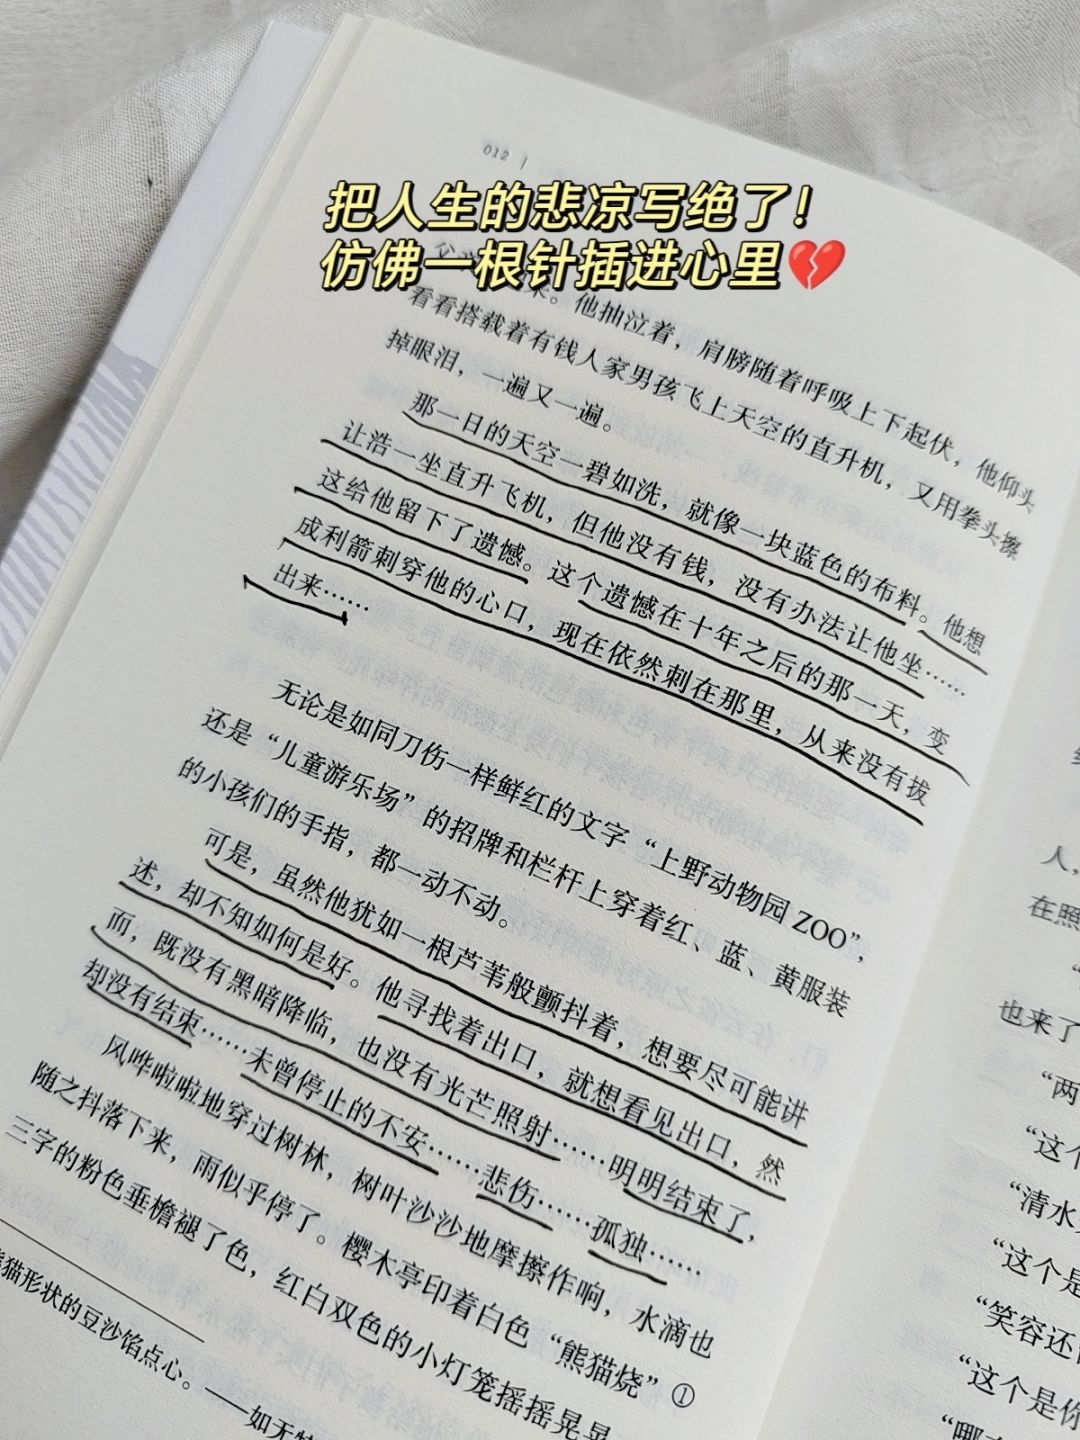 012
把人生的悲凉写绝了！
仿佛一根针插进心里💔
他抽泣着，肩膀随着呼吸上下起伏，他仰头
看看搭载着有钱人家男孩飞上天空的直升机，又用拳头擦
掉眼泪，一遍又一遍。
那一日的天空一碧如洗，就像一块蓝色的布料。他想
让浩一坐直升飞机，但他没有钱，没有办法让他坐……
这给他留下了遗憾。这个遗憾在十年之后的那一天，变
成利箭刺穿他的心口，现在依然刺在那里，从来没有拔
出来……
无论是如同刀伤一样鲜红的文字“上野动物园ZOO”，
还是“儿童游乐场”的招牌和栏杆上穿着红、蓝、黄服装
的小孩们的手指，都一动不动。
可是，虽然他犹如一根芦苇般颤抖着，想要尽可能讲
述，却不知如何是好。他寻找着出口，就想看见出口，然
而，既没有黑暗降临，也没有光芒照射……明明结束了，
却没有结束……未曾停止的不安……悲伤……孤独……
风哗啦啦地穿过树林，树叶沙沙地摩擦作响，水滴也
随之抖落下来，雨似乎停了。樱木亭印着白色“熊猫烧”①
三字的粉色垂檐褪了色，红白双色的小灯笼摇摇晃晃
猫形状的豆沙馅点心。——如无特
人，
在照
也来了
“两
“这个
“清水
“这个是
“笑容还
“这个是你
“哪